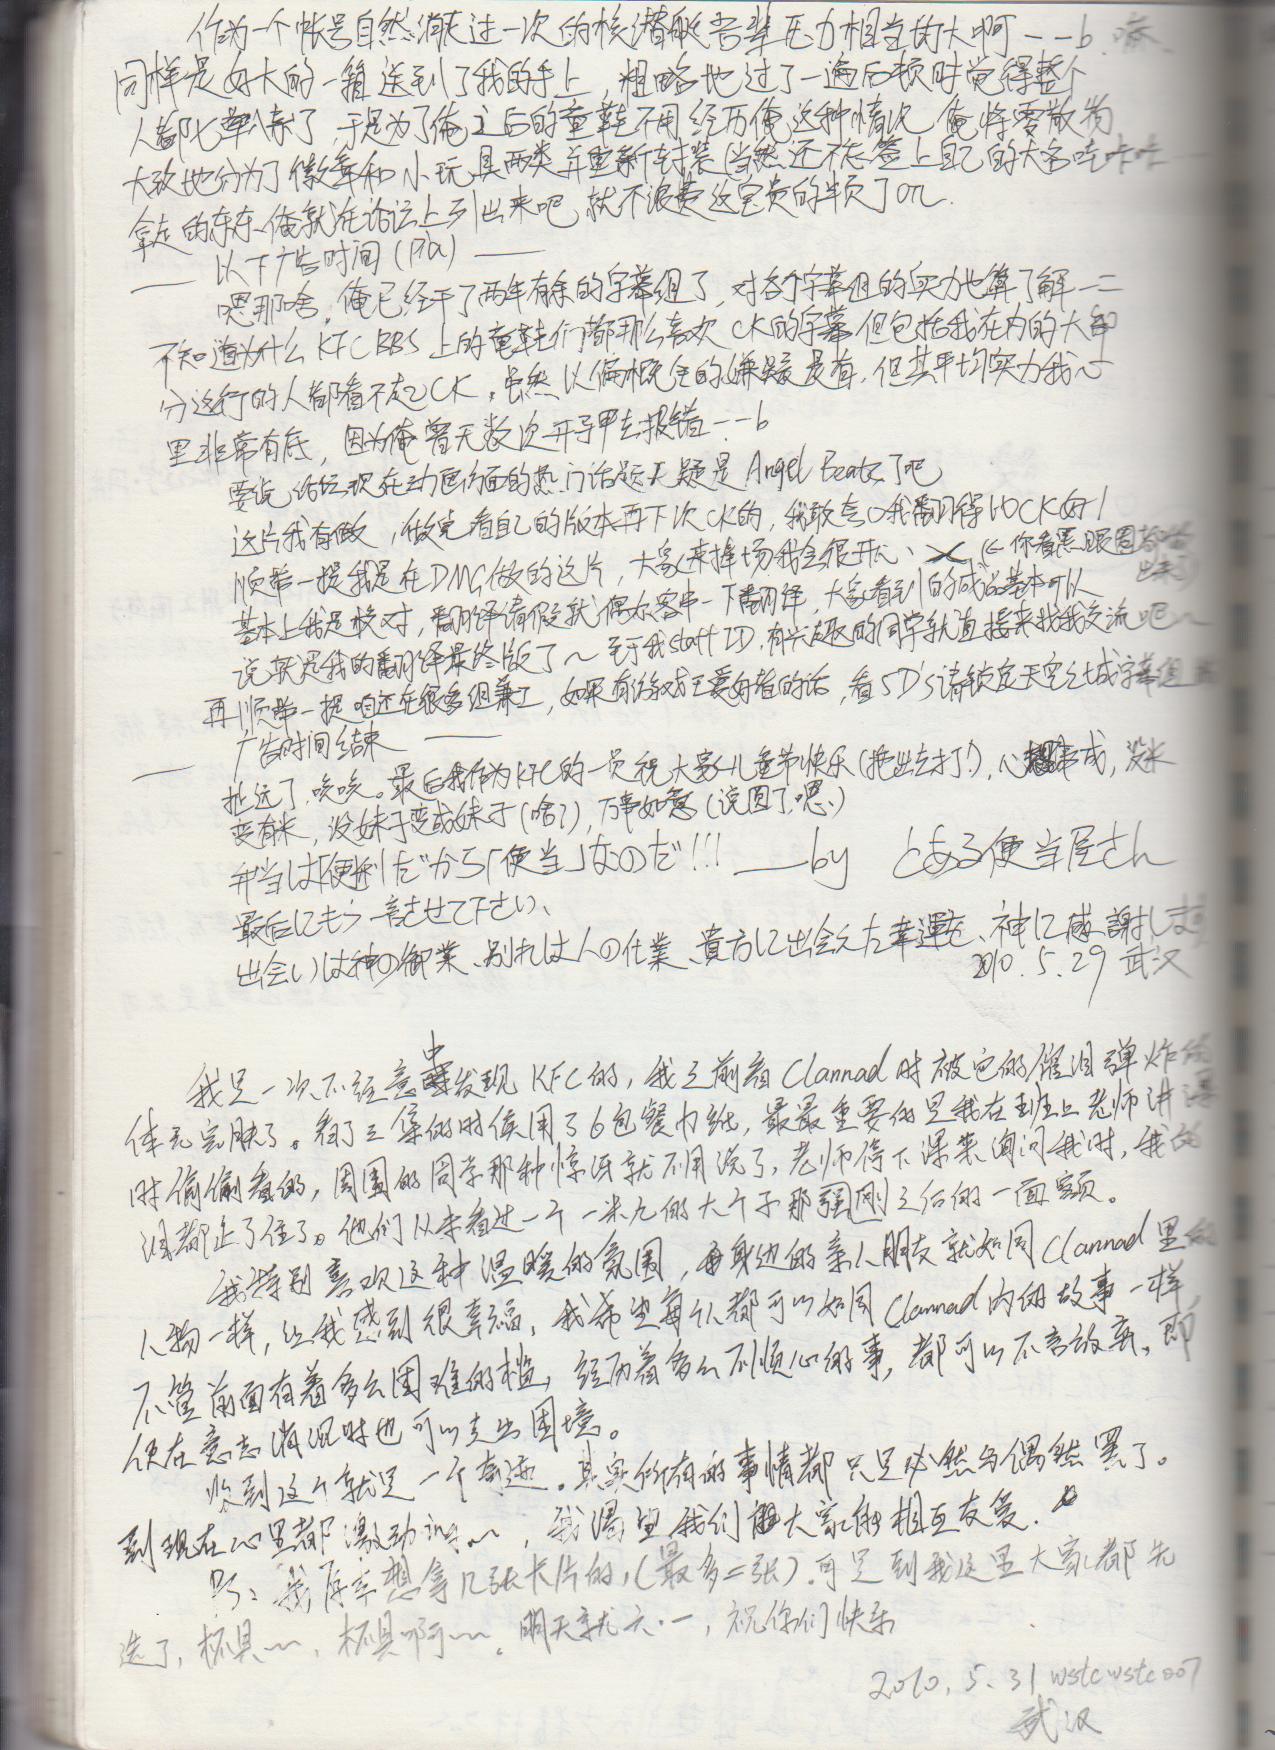 作为一个帐号自然消失过一次的核潜艇吾辈压力相当的大啊--b
同样是好大的一箱送到了我的手上，粗略地过了一遍后顿时觉得整个
人都了，于是为了俺之后的童鞋不用经历俺这种情况 俺将零散物
大致地分为了徽章和小玩具两类并重新封装(当然还不忘签上自己的大名哇咔咔
拿走的东东俺就在论坛上列出来吧 就不浪费这宝贵的半页了orz
—— 以下广告时间(Pia) ——
嗯那啥，俺已经干了两年有余的字幕组了，对各个字幕组的实力也算了解一二
不知道为什么KFC BBS上的童鞋们都那么喜欢CK的字幕 但包括我在内的大部
分这行的人都看不起CK，虽然以偏概全的嫌疑是有，但其平均实力我心
里非常有底，因为俺曾无数次开手甲去报错--b
要说论坛现在动画方面的热门话题无疑是Angel Beats了吧
这片我有做，做完看自己的版本再下次CK的，我敢说我翻得比CK好！
顺带一提我是在DMG做的这片，大家来捧场我会很开心、 (←你看黑眼圈都出来了)
基本上我是校对，翻译请假就偶尔客串一下翻译，大家看到的成品基本可以
说就是我的翻译最终版了～ 至于我staff ID，有兴趣的同学就直接来找我交流吧～
再顺带一提咱还在很多组兼工，如果有游戏王爱好者的话，看5D's请锁定天空之城字幕组
—— 广告时间结束 ——
扯远了，咳咳。最后我作为KFC的一员祝大家儿童节快乐(拖出去打!)，心想事成，没米
变有米，没妹子变成妹子(啥?)，万事如意(说圆了嗯、)
弁当は「便利」だから「便当」なのだ!!! ——by とある便当屋さん
最后にもう一言わせて下さい、
出会いは神の御業、别れは人の仕業、貴方に出会えた幸運を、神に感謝します
2010.5.29 武汉
我是一次不经意中发现KFC的，我之前看Clannad时被它的催泪弹炸的
体无完肤了。看了三集的时候用了6包餐巾纸，最最重要的是我在班上老师讲课
时偷偷看的，周围的同学那种惊讶就不用说了，老师停下课来询问我时，我的
泪都止不住了。他们从未看过一个一米九的大个子那强刚之后的一面窘。
我特别喜欢这种温暖的氛围，每身边的亲人朋友就如同Clannad里的
人物一样，让我感到很幸福，我希望每个人都可以如同Clannad内的故事一样，
不管前面有着多么困难的槛，经历着多么不顺心的事，都可以不言放弃，即
便在意志消沉时也可以走出困境。
收到这个就是一个奇迹，其实所有的事情都只是必然与偶然罢了。
到现在心里都激动ing~~，我渴望我们大家能相互友爱。
PS：我原本想拿几张卡片的，(最多二张)，可是到我这里大家都先
选了，杯具~~，杯具啊~~。明天就六·一，祝你们快乐
2010.5.31 wstcwstc007
武汉